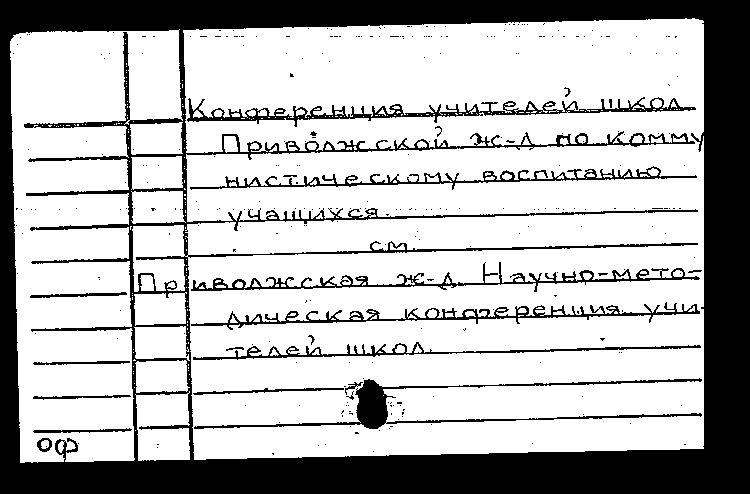 Конференция учителей школ
Приволжской ж-д по комму
нистическому воспитанию
учащихся.
см.
Приволжская ж-д. Научно-мето-
дическая конференция учи-
телей школ.
оф